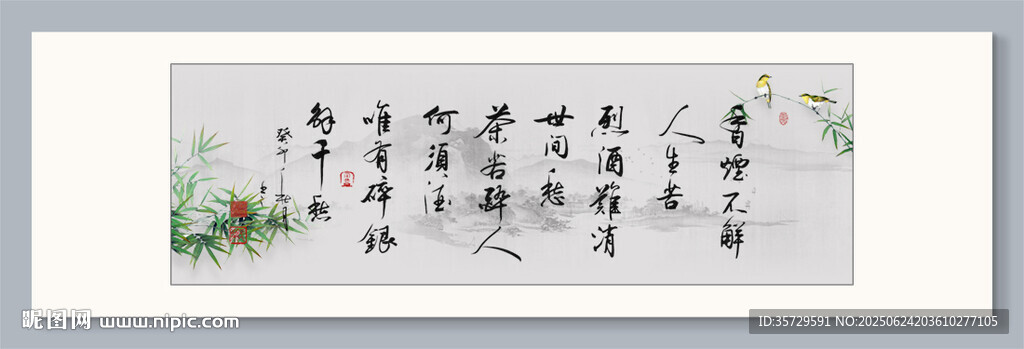 香煙不解
人生苦
烈酒難消
世間愁
茶若醉人
何須酒
唯有碎銀
解千愁
癸卯
昵图网 www.nipic.com
ID:35729591 NO:20250624203610277105